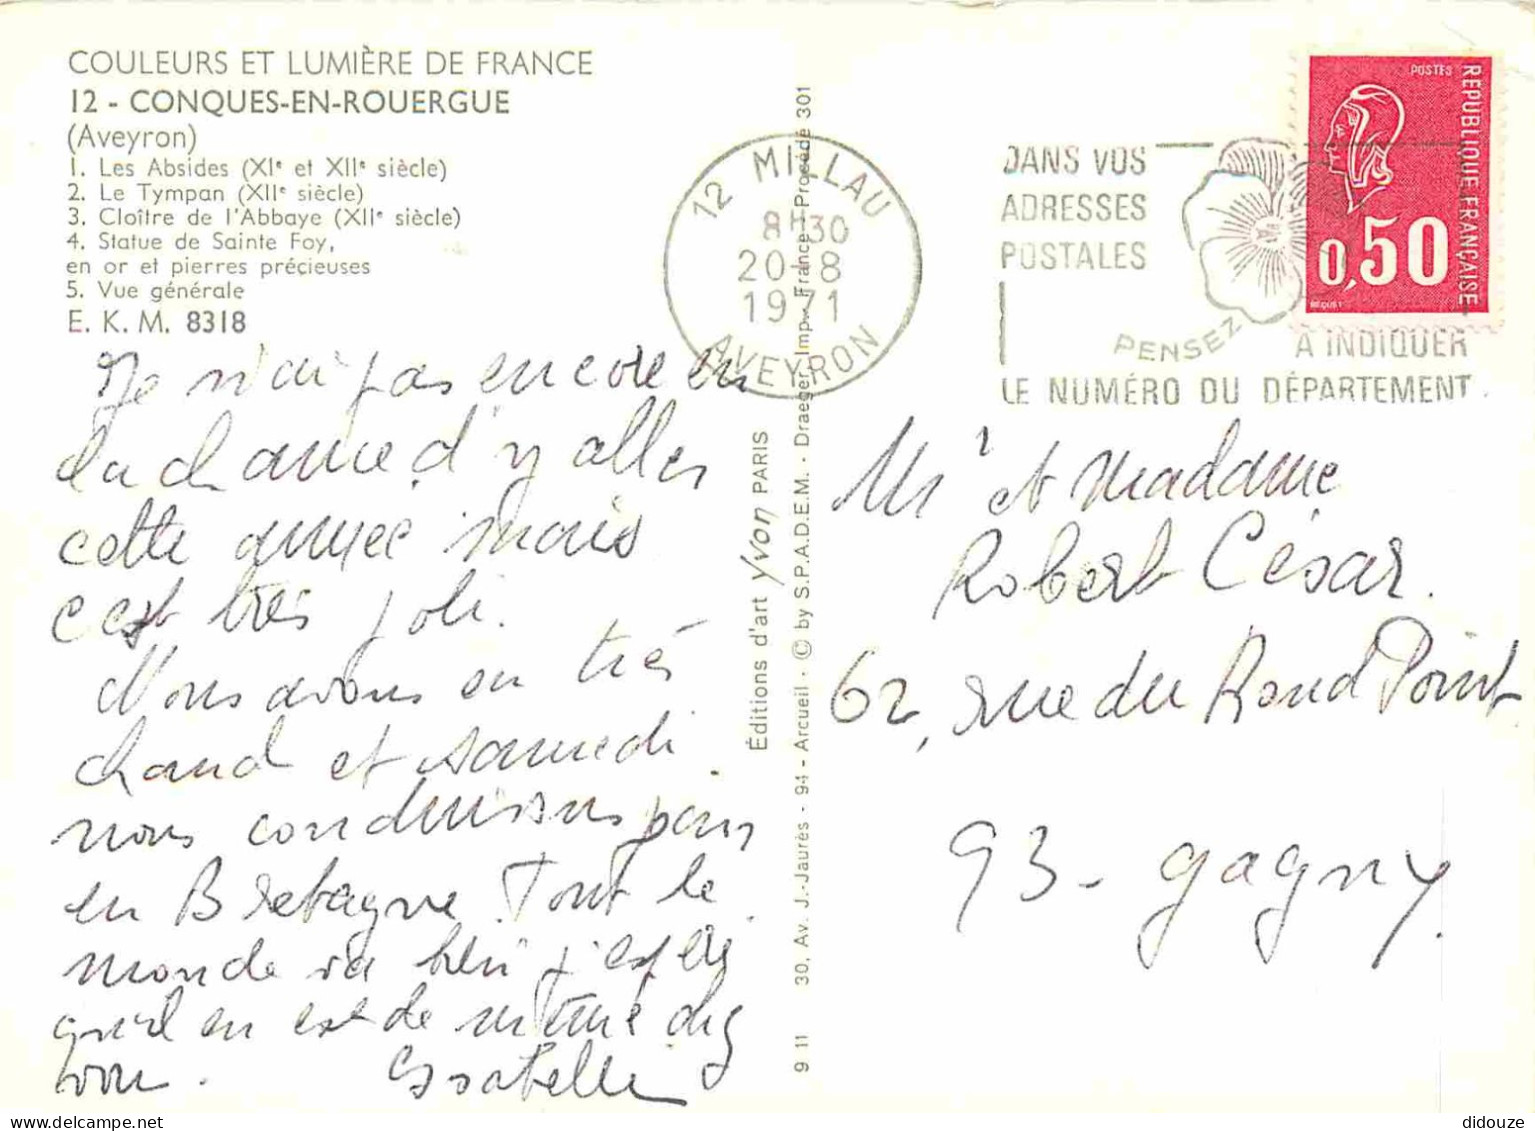 COULEURS ET LUMIÈRE DE FRANCE
12 - CONQUES-EN-ROUERGUE
(Aveyron)
1. Les Absides (XIe et XIIe siècle)
2. Le Tympan (XIIe siècle)
3. Cloître de l'Abbaye (XIIe siècle)
4. Statue de Sainte Foy,
en or et pierres précieuses
5. Vue générale
E. K. M. 8318
Je n'ai pas encore eu
la chance d'y aller
cette année mais
c'est très joli.
Nous avons eu très
chaud et samedi
nous conduisons
en Bretagne. Tout le
monde va bien j'espère
qu'il en est de même chez
vous. Isabelle
Éditions d'art Yvon PARIS
9 11 30, Av. J.-Jaurès - 94 - Arcueil - © by S.P.A.D.E.M. - Draeger, Imp. France - Procédé 301
12 MILLAU
8H30
20-8
1971
AVEYRON
DANS VOS
ADRESSES
POSTALES
PENSEZ
A INDIQUER
LE NUMÉRO DU DÉPARTEMENT
POSTES
REPUBLIQUE FRANÇAISE
0,50
BEQUET
Mr et Madame
Robert César.
62, rue du Rond Point
93 - Gagny.
didouze